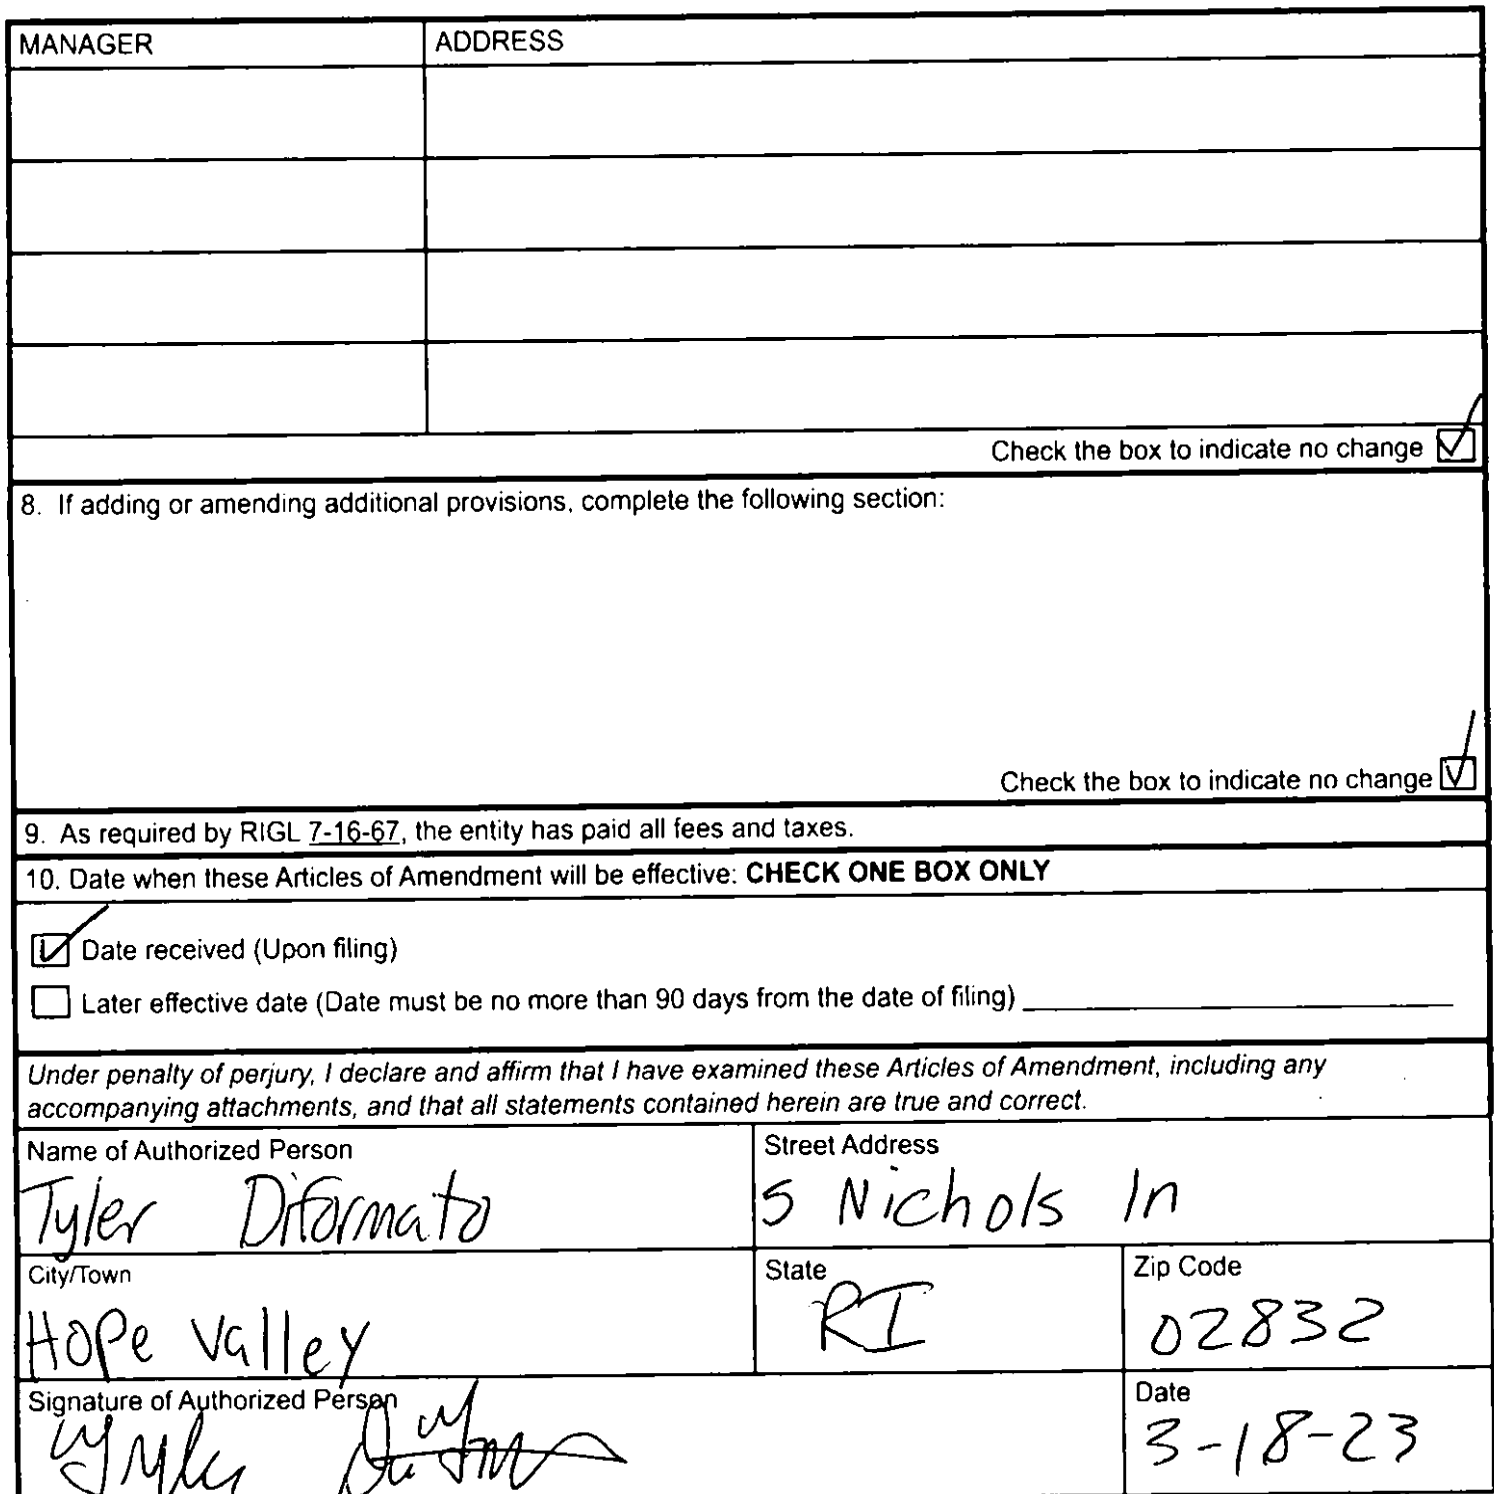 MANAGER ADDRESS
Check the box to indicate no change
8. If adding or amending additional provisions, complete the following section:
Check the box to indicate no change
9. As required by RIGL 7-16-67, the entity has paid all fees and taxes.
10. Date when these Articles of Amendment will be effective: CHECK ONE BOX ONLY
Date received (Upon filing)
Later effective date (Date must be no more than 90 days from the date of filing)
Under penalty of perjury, I declare and affirm that I have examined these Articles of Amendment, including any
accompanying attachments, and that all statements contained herein are true and correct.
Name of Authorized Person Street Address
Tyler Diformato 5 Nichols ln
City/Town State Zip Code
Hope Valley RI 02832
Signature of Authorized Person Date
Tyler 3-18-23